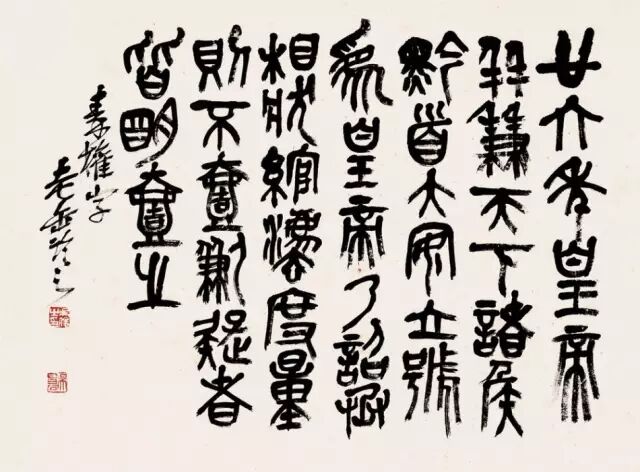 廿六年皇帝
并兼天下諸侯
黔首大安立號
為皇帝乃詔丞
相狀綰灋度量
則不壹歉疑者
皆明壹之
秦權字
老缶